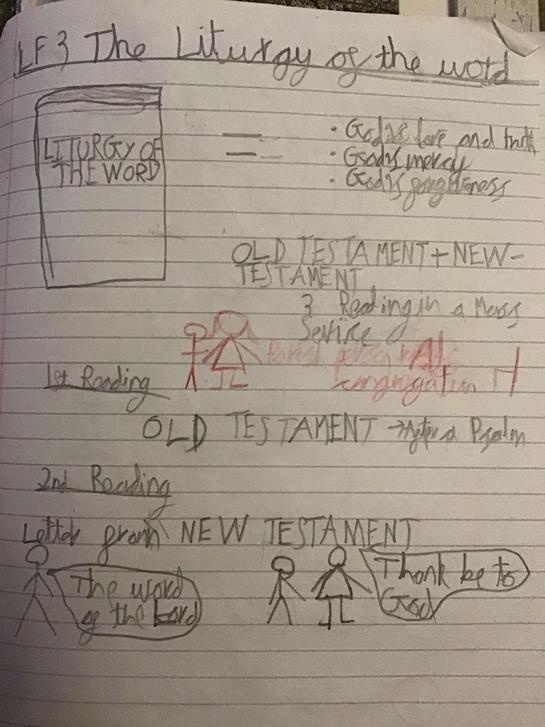 LF3 The Liturgy of the word
LITURGY OF
THE WORD
=
• God's love and truth
• God's mercy
• God's forgiveness
OLD TESTAMENT + NEW-
TESTAMENT
3 Reading in a Mass
Service
congregation
1st Reading
OLD TESTAMENT → After a Psalm
2nd Reading
Letter from NEW TESTAMENT
The word
of the Lord
Thank be to
God